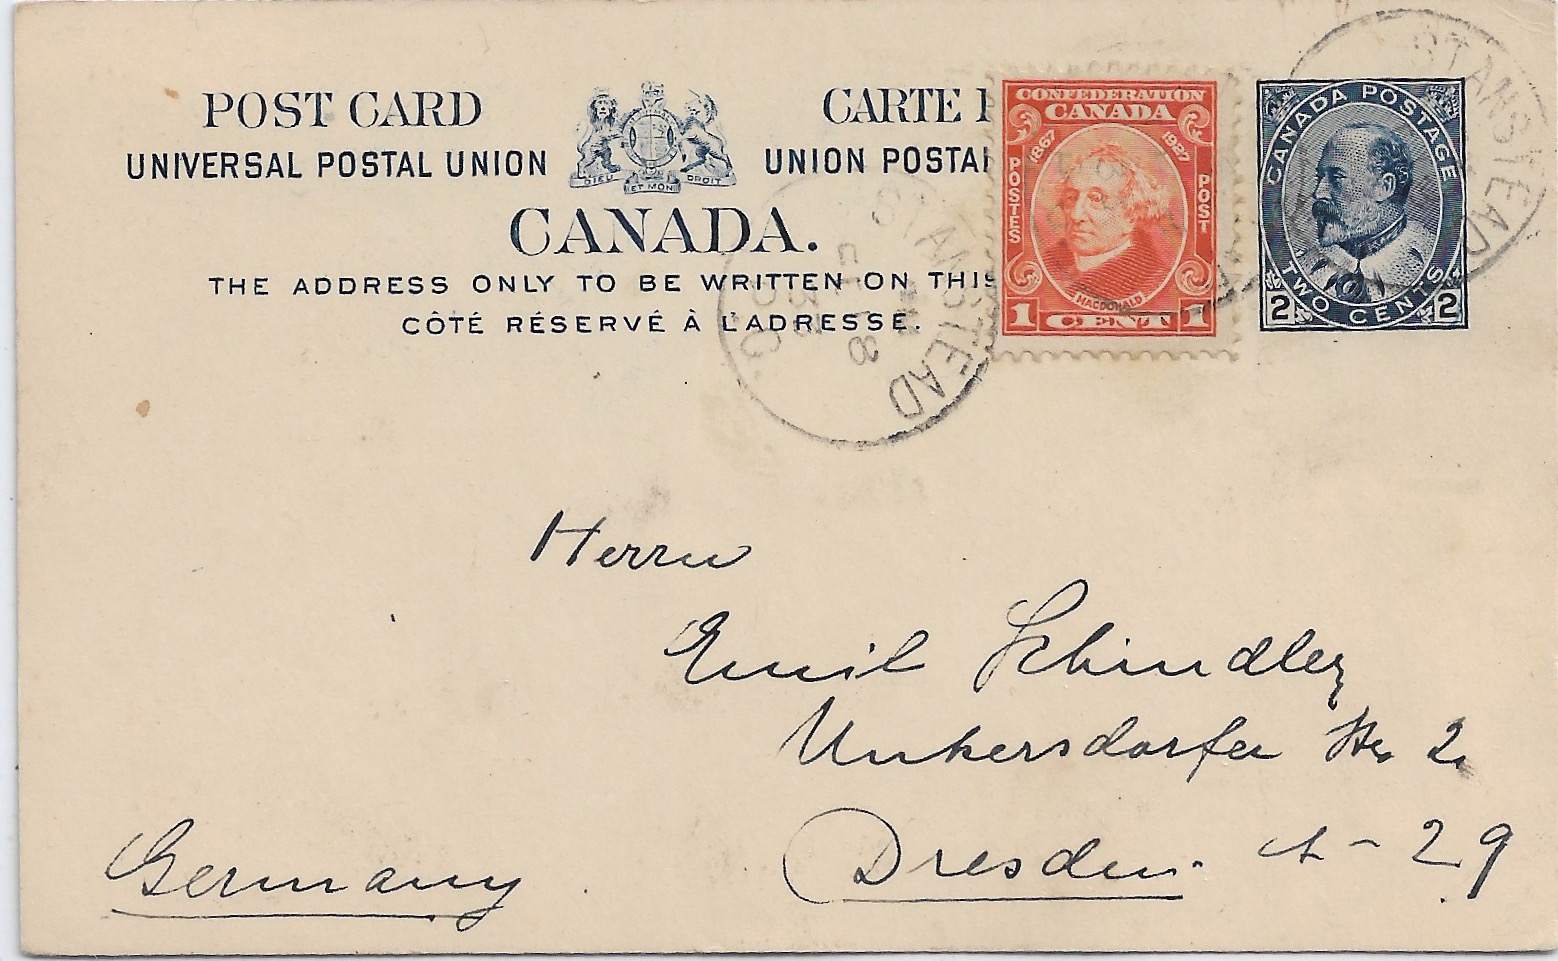 POST CARD
UNIVERSAL POSTAL UNION
CARTE
UNION POSTAL
DIEU ET MON DROIT
CANADA.
THE ADDRESS ONLY TO BE WRITTEN ON THIS
CÔTÉ RÉSERVÉ À L'ADRESSE.
CONFEDERATION
CANADA
1867 1927
POSTES POST
MACDONALD
1 CENT 1
CANADA POSTAGE
2 TWO CENTS 2
STANSTEAD
STANSTEAD
Herrn
Emil Schindler
Unkersdorfer Str 2.
Dresden. A - 29
Germany